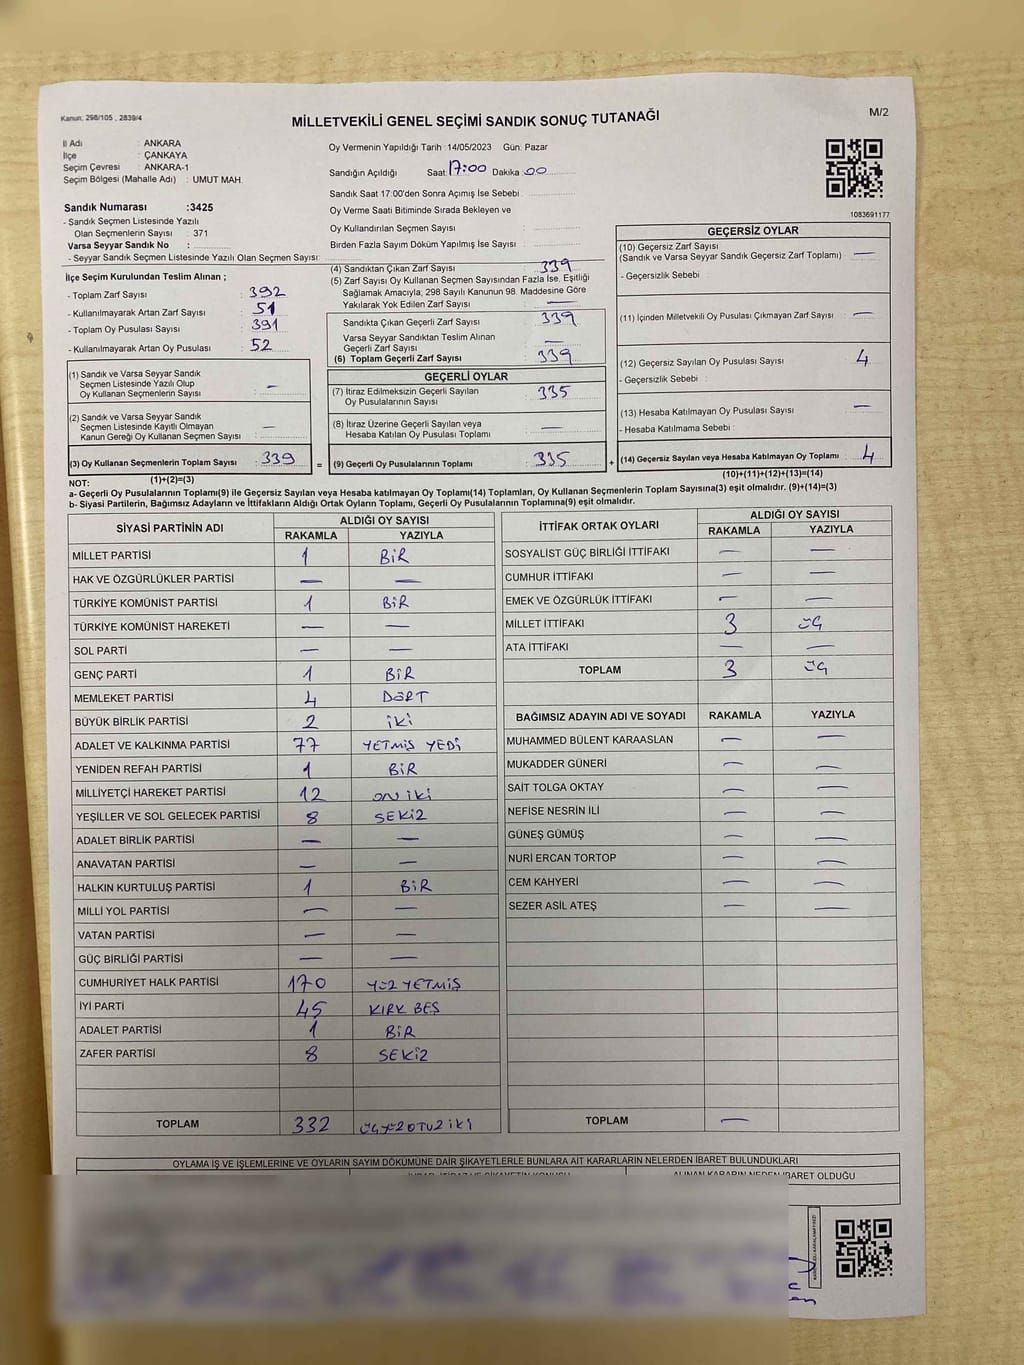 Kanun: 298/105 , 2839/4
MİLLETVEKİLİ GENEL SEÇİMİ SANDIK SONUÇ TUTANAĞI
M/2
İl Adı : ANKARA
İlçe : ÇANKAYA
Seçim Çevresi : ANKARA-1
Seçim Bölgesi (Mahalle Adı) : UMUT MAH.
Oy Vermenin Yapıldığı Tarih :14/05/2023 Gün: Pazar
Sandığın Açıldığı Saat: 17:00 Dakika 00
Sandık Saat 17:00'den Sonra Açımış İse Sebebi :
Oy Verme Saati Bitiminde Sırada Bekleyen ve
Oy Kullandırılan Seçmen Sayısı :
Birden Fazla Sayım Döküm Yapılmış İse Sayısı :
1083691177
Sandık Numarası :3425
- Sandık Seçmen Listesinde Yazılı
Olan Seçmenlerin Sayısı : 371
Varsa Seyyar Sandık No :
- Seyyar Sandık Seçmen Listesinde Yazılı Olan Seçmen Sayısı:
İlçe Seçim Kurulundan Teslim Alınan ;
- Toplam Zarf Sayısı : 392
- Kullanılmayarak Artan Zarf Sayısı : 51
- Toplam Oy Pusulası Sayısı : 391
- Kullanılmayarak Artan Oy Pusulası : 52
(1) Sandık ve Varsa Seyyar Sandık
Seçmen Listesinde Yazılı Olup
Oy Kullanan Seçmenlerin Sayısı : —
(2) Sandık ve Varsa Seyyar Sandık
Seçmen Listesinde Kayıtlı Olmayan
Kanun Gereği Oy Kullanan Seçmen Sayısı : —
(3) Oy Kullanan Seçmenlerin Toplam Sayısı : 339
(1)+(2)=(3)
(4) Sandıktan Çıkan Zarf Sayısı : 339
(5) Zarf Sayısı Oy Kullanan Seçmen Sayısından Fazla İse, Eşitliği
Sağlamak Amacıyla, 298 Sayılı Kanunun 98. Maddesine Göre
Yakılarak Yok Edilen Zarf Sayısı : —
Sandıkta Çıkan Geçerli Zarf Sayısı : 339
Varsa Seyyar Sandıktan Teslim Alınan
Geçerli Zarf Sayısı : —
(6) Toplam Geçerli Zarf Sayısı : 339
GEÇERLİ OYLAR
(7) İtiraz Edilmeksizin Geçerli Sayılan
Oy Pusulalarının Sayısı : 335
(8) İtiraz Üzerine Geçerli Sayılan veya
Hesaba Katılan Oy Pusulası Toplamı : —
= (9) Geçerli Oy Pusulalarının Toplamı : 335
GEÇERSİZ OYLAR
(10) Geçersiz Zarf Sayısı
(Sandık ve Varsa Seyyar Sandık Geçersiz Zarf Toplamı) : —
- Geçersizlik Sebebi :
(11) İçinden Milletvekili Oy Pusulası Çıkmayan Zarf Sayısı : —
(12) Geçersiz Sayılan Oy Pusulası Sayısı : 4
- Geçersizlik Sebebi :
(13) Hesaba Katılmayan Oy Pusulası Sayısı : —
- Hesaba Katılmama Sebebi :
+ (14) Geçersiz Sayılan veya Hesaba Katılmayan Oy Toplamı : 4
(10)+(11)+(12)+(13)=(14)
NOT:
a- Geçerli Oy Pusulalarının Toplamı(9) ile Geçersiz Sayılan veya Hesaba katılmayan Oy Toplamı(14) Toplamları, Oy Kullanan Seçmenlerin Toplam Sayısına(3) eşit olmalıdır. (9)+(14)=(3)
b- Siyasi Partilerin, Bağımsız Adayların ve İttifakların Aldığı Ortak Oyların Toplamı, Geçerli Oy Pusulalarının Toplamına(9) eşit olmalıdır.
SİYASİ PARTİNİN ADI ALDIĞI OY SAYISI
RAKAMLA YAZIYLA
MİLLET PARTİSİ 1 BİR
HAK VE ÖZGÜRLÜKLER PARTİSİ — —
TÜRKİYE KOMÜNİST PARTİSİ 1 BİR
TÜRKİYE KOMÜNİST HAREKETİ — —
SOL PARTİ — —
GENÇ PARTİ 1 BİR
MEMLEKET PARTİSİ 4 DÖRT
BÜYÜK BİRLİK PARTİSİ 2 İKİ
ADALET VE KALKINMA PARTİSİ 77 YETMİŞ YEDİ
YENİDEN REFAH PARTİSİ 1 BİR
MİLLİYETÇİ HAREKET PARTİSİ 12 ON İKİ
YEŞİLLER VE SOL GELECEK PARTİSİ 8 SEKİZ
ADALET BİRLİK PARTİSİ — —
ANAVATAN PARTİSİ — —
HALKIN KURTULUŞ PARTİSİ 1 BİR
MİLLİ YOL PARTİSİ — —
VATAN PARTİSİ — —
GÜÇ BİRLİĞİ PARTİSİ — —
CUMHURİYET HALK PARTİSİ 170 YÜZ YETMİŞ
İYİ PARTİ 45 KIRK BEŞ
ADALET PARTİSİ 1 BİR
ZAFER PARTİSİ 8 SEKİZ
TOPLAM 332 ÜÇYÜZOTUZ İKİ
İTTİFAK ORTAK OYLARI ALDIĞI OY SAYISI
RAKAMLA YAZIYLA
SOSYALİST GÜÇ BİRLİĞİ İTTİFAKI — —
CUMHUR İTTİFAKI — —
EMEK VE ÖZGÜRLÜK İTTİFAKI — —
MİLLET İTTİFAKI 3 ÜÇ
ATA İTTİFAKI — —
TOPLAM 3 ÜÇ
BAĞIMSIZ ADAYIN ADI VE SOYADI RAKAMLA YAZIYLA
MUHAMMED BÜLENT KARAASLAN — —
MUKADDER GÜNERİ — —
SAİT TOLGA OKTAY — —
NEFİSE NESRİN İLİ — —
GÜNEŞ GÜMÜŞ — —
NURİ ERCAN TORTOP — —
CEM KAHYERİ — —
SEZER ASİL ATEŞ — —
TOPLAM —
OYLAMA İŞ VE İŞLEMLERİNE VE OYLARIN SAYIM DÖKÜMÜNE DAİR ŞİKAYETLERLE BUNLARA AİT KARARLARIN NELERDEN İBARET BULUNDUKLARI
ALINAN KARARIN NEDEN İBARET OLDUĞU